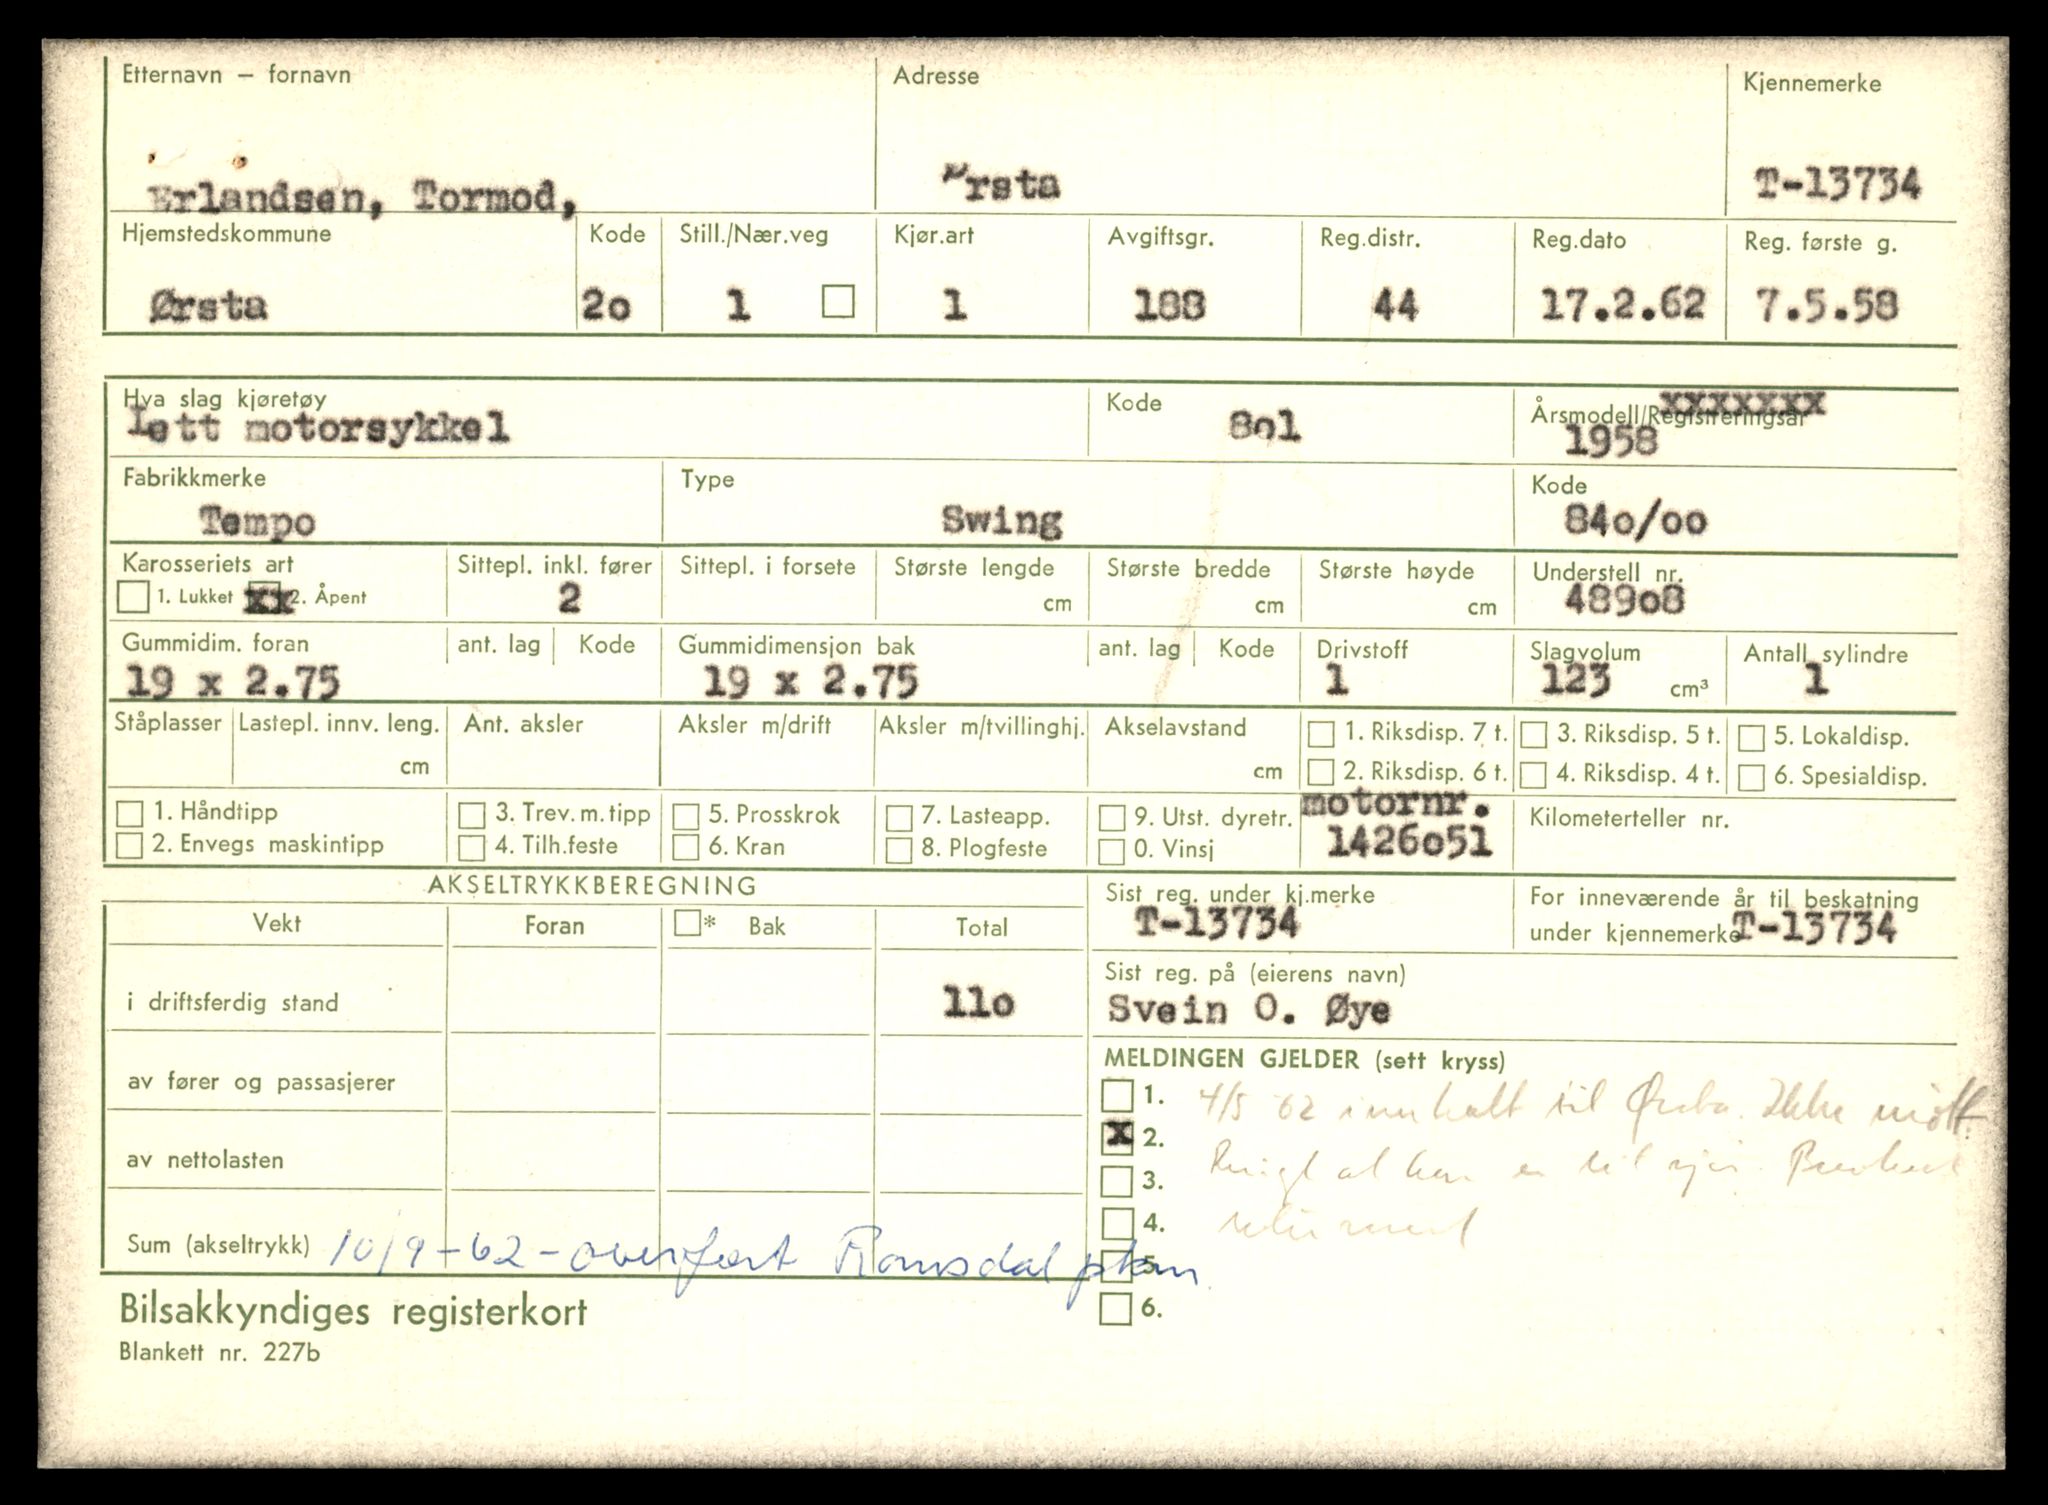 Etternavn – fornavn Adresse Kjennemerke
Erlandsen, Tormod, Ørsta T-13734
Hjemstedskommune Kode Still./Nær.veg Kjør.art Avgiftsgr. Reg.distr. Reg.dato Reg. første g.
Ørsta 2o 1 1 188 44 17.2.62 7.5.58
Hva slag kjøretøy Kode Årsmodell/Registreringsår xxxxxxx
Lett motorsykkel 8o1 1958
Fabrikkmerke Type Kode
Tempo Swing 84o/oo
Karosseriets art Sittepl. inkl. fører Sittepl. i forsete Største lengde Største bredde Største høyde Understell nr.
1. Lukket xx 2. Åpent 2 cm cm cm 489o8
Gummidim. foran ant. lag Kode Gummidimensjon bak ant. lag Kode Drivstoff Slagvolum Antall sylindre
19 x 2.75 19 x 2.75 1 123 cm³ 1
Ståplasser Lastepl. innv. leng. Ant. aksler Aksler m/drift Aksler m/tvillinghj. Akselavstand 1. Riksdisp. 7 t. 3. Riksdisp. 5 t. 5. Lokaldisp.
cm cm 2. Riksdisp. 6 t. 4. Riksdisp. 4 t. 6. Spesialdisp.
1. Håndtipp 3. Trev. m. tipp 5. Prosskrok 7. Lasteapp. 9. Utst. dyretr. motornr. Kilometerteller nr.
2. Envegs maskintipp 4. Tilh.feste 6. Kran 8. Plogfeste 0. Vinsj 1426o51
AKSELTRYKKBEREGNING Sist reg. under kj.merke For inneværende år til beskatning
Vekt Foran * Bak Total T-13734 under kjennemerke T-13734
Sist reg. på (eierens navn)
i driftsferdig stand 11o Svein O. Øye
MELDINGEN GJELDER (sett kryss)
av fører og passasjerer 1. 4/5 62 innkalt til Ørsta. Ikke møtt.
x 2.
av nettolasten 3. at han er til sjøs.
4. returnert
Sum (akseltrykk) 10/9-62-overført Romsdal 5.
Bilsakkyndiges registerkort 6.
Blankett nr. 227b